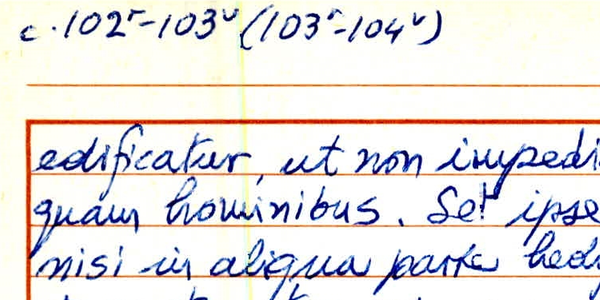 c. 102r-103v (103r-104v)
edificatur, ut non impedi
quam hominibus. Set ipse
nisi in aliqua parte hedi